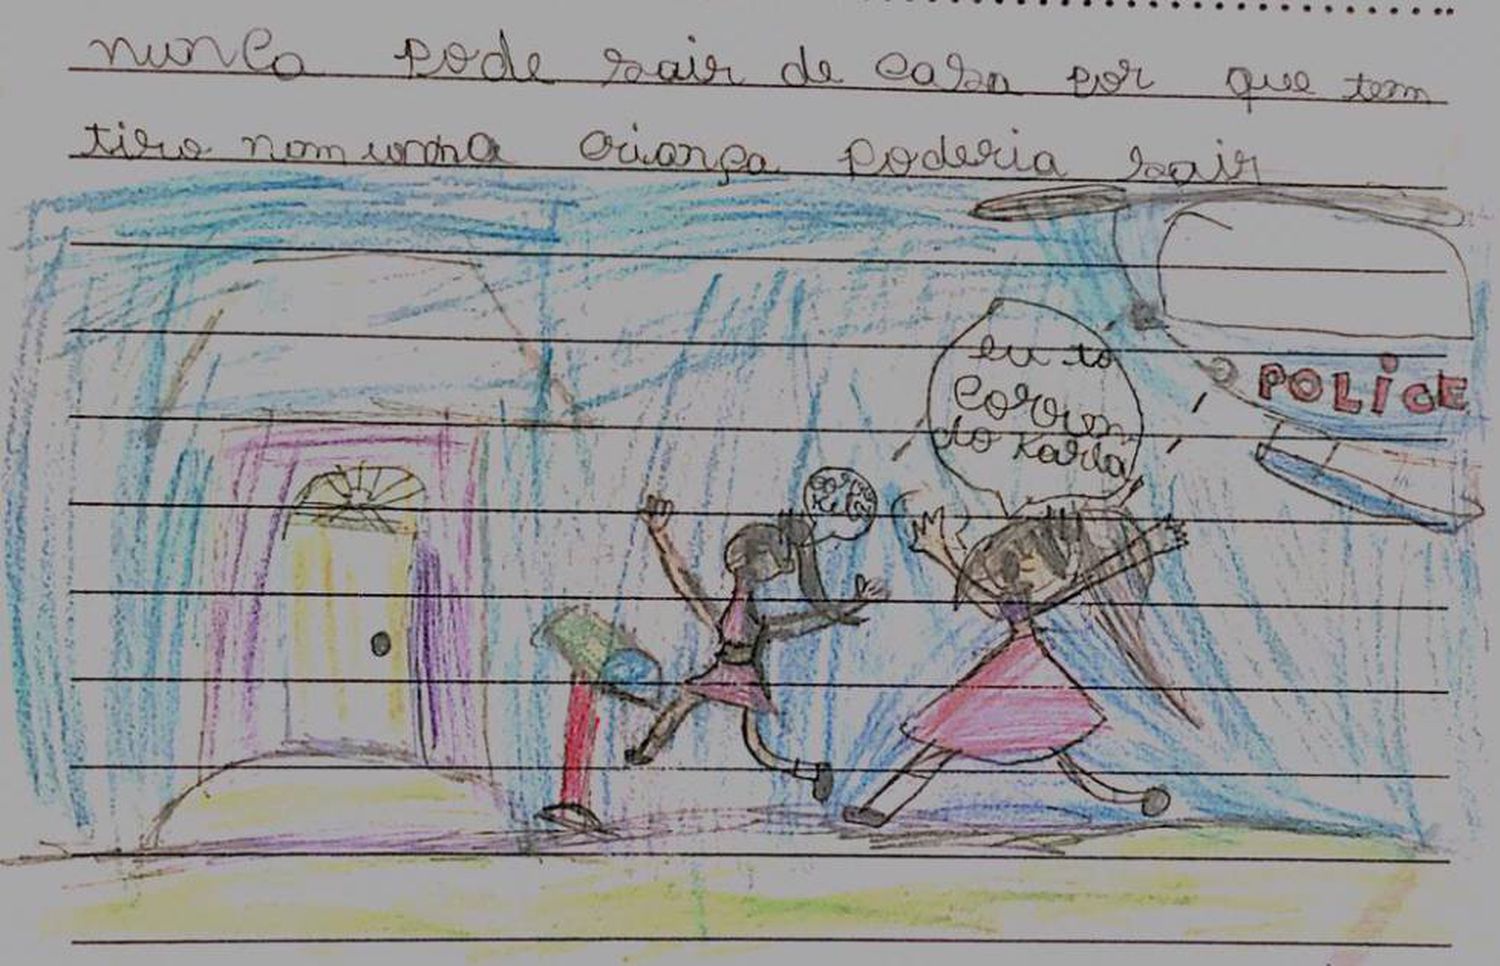 nunca pode sair de casa por que tem
tiro nomuma criança poderia sair
eu to
corren
do Karla
POLICE